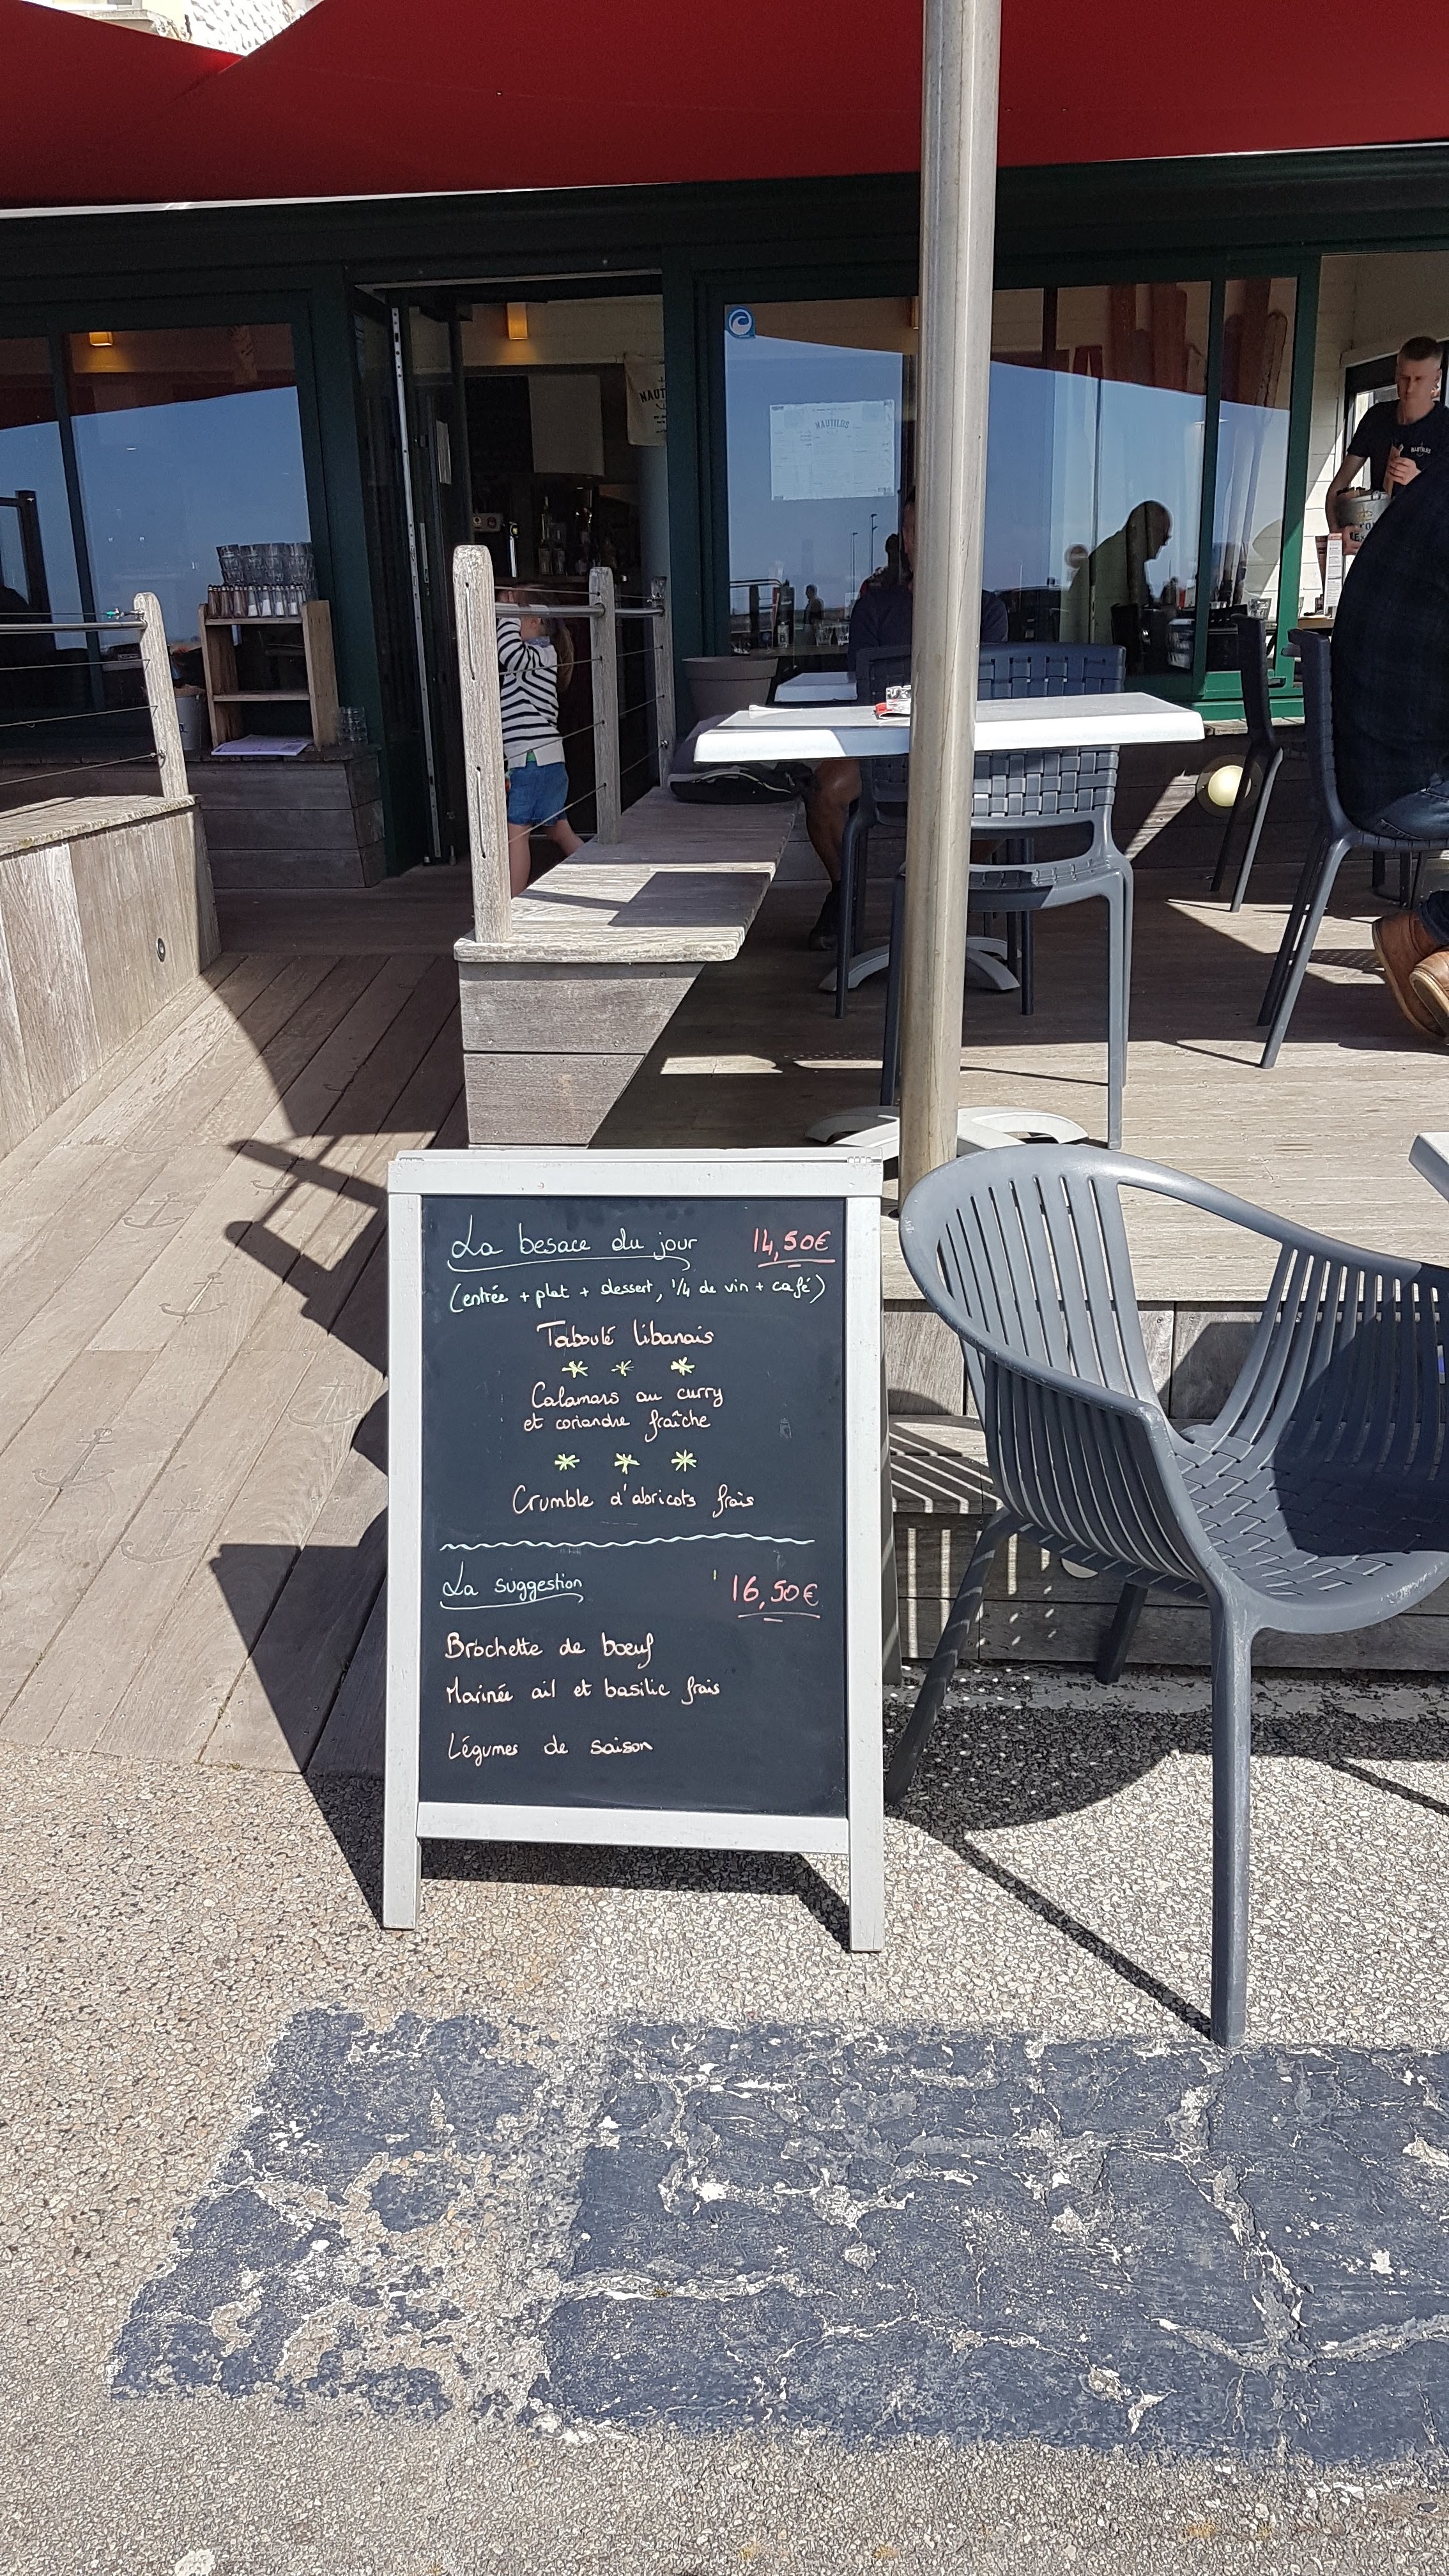 NAUTILUS
La besace du jour 14,50€
(entrée + plat + dessert, 1/4 de vin + café)
Taboulé libanais
* * *
Calamars au curry
et coriandre fraîche
* * *
Crumble d'abricots frais
La suggestion 16,50€
Brochette de boeuf
Marinée ail et basilic frais
Légumes de saison